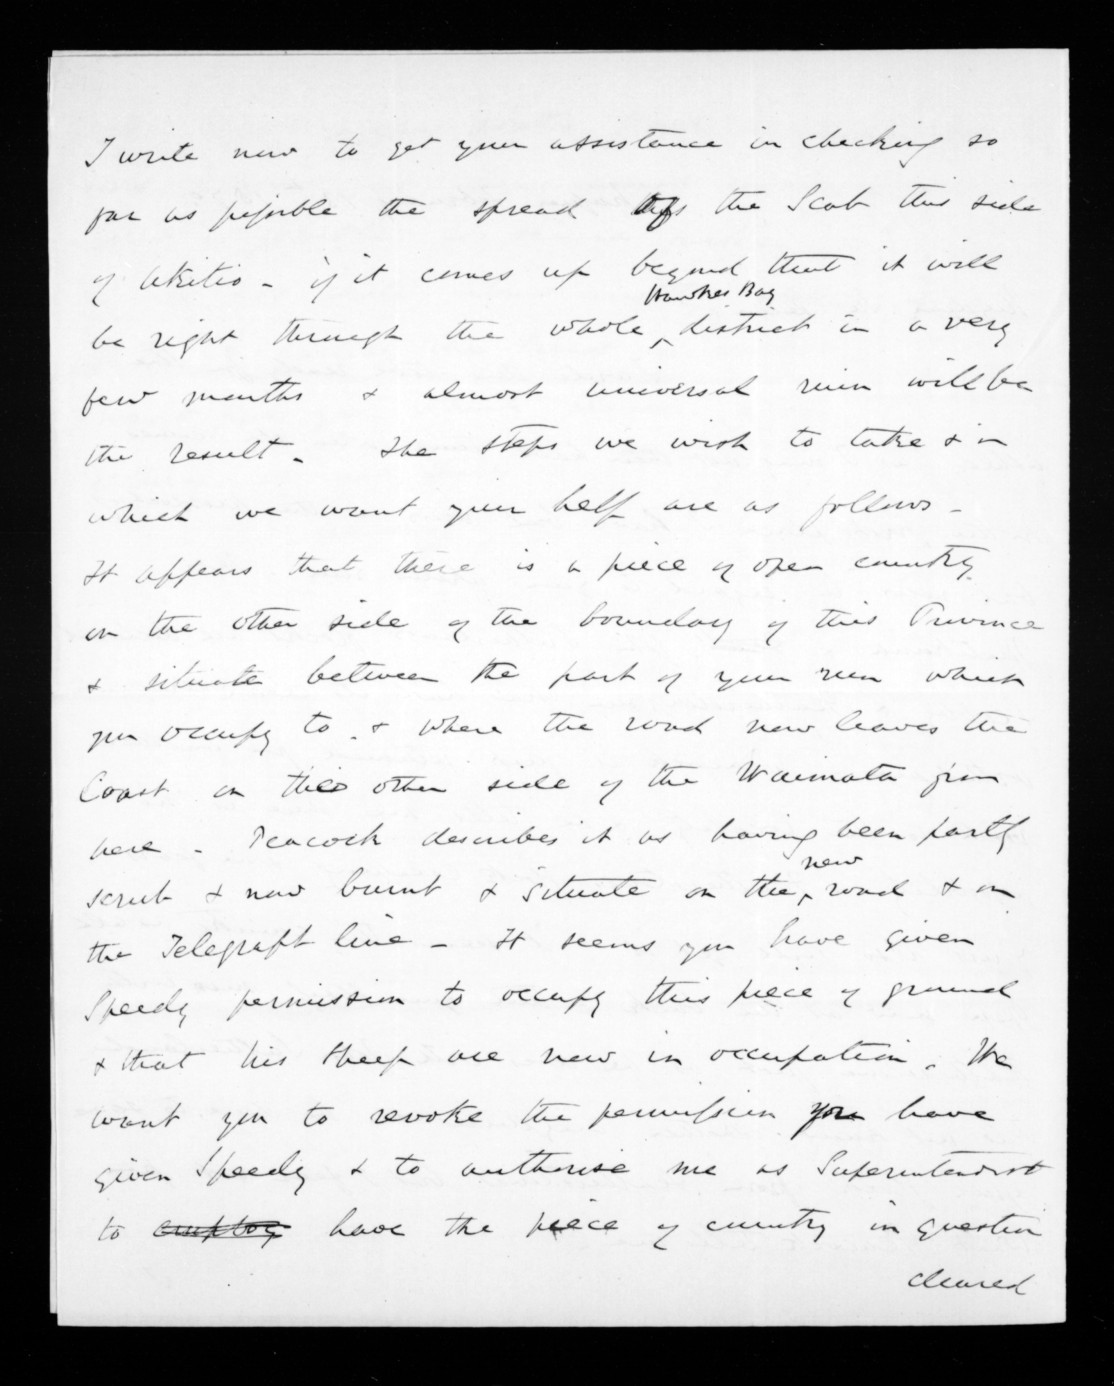 I write now to get your assistance in checking so
far as possible the spread of the Scab this side
of Akitio - if it comes up beyond that it will
Hawkes Bay
be right through the whole district in a very
few months & almost universal ruin will be
the result - The steps we wish to take & in
which we want your help are as follows -
It appears that there is a piece of open country
on the other side of the boundary of this Province
& situate between the part of your run which
you occupy to. & where the road now leaves the
Coast on the other side of the Waimata from
here - Peacock describes it as having been partly
new
scrub & now burnt & situate on the road & on
the Telegraph line - It seems you have given
Speedy permission to occupy this piece of ground
& that his sheep are now in occupation. We
want you to revoke the permission you have
given Speedy & to authorise me as Superintendent
to employ have the piece of country in question
cleared